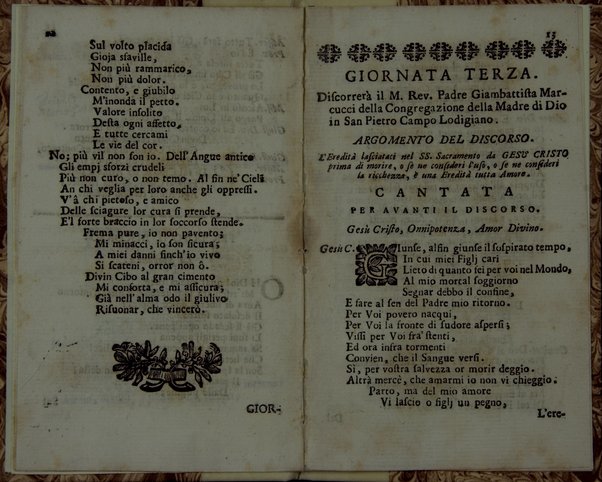 22
Sul volto placida
Gioja sfaville,
Non più rammarico,
Non più dolor.
Contento, e giubilo
M'inonda il petto.
Valore insolito
Desta ogni affetto,
E tutte cercami
Le vie del cor.
No; più vil non son io. Dell'Angue antico
Gli empj sforzi crudeli
Più non curo, o non temo. Al fin ne' Cieli
An chi veglia per loro anche gli oppressi.
V'à chi pietoso, e amico
Delle sciagure lor cura si prende,
E'l forte braccio in lor soccorso stende.
Frema pure, io non pavento;
Mi minacci, io son sicura;
A miei danni sinch'io vivo
Si scateni, orror non ô.
Divin Cibo al gran cimento
Mi conforta, e mi assicura;
Già nell'alma odo il giulivo
Risuonar, che vincerò.
GIOR-
23
GIORNATA TERZA.
Discorrerà il M. Rev. Padre Giambattista Mar-
cucci della Congregazione della Madre di Dio
in San Pietro Campo Lodigiano.
ARGOMENTO DEL DISCORSO.
L'Eredità lasciataci nel SS. Sacramento da GESU' CRISTO
prima di morire, o se ne consideri l'uso, o se ne consideri
la ricchezza, è una Eredità tutta Amore.
CANTATA
PER AVANTI IL DISCORSO.
Gesù Cristo, Onnipotenza, Amor Divino.
Gesù C. Giunse, alfin giunse il sospirato tempo,
In cui miei Figlj cari
Lieto di quanto fei per voi nel Mondo,
Al mio mortal soggiorno
Segnar debbo il confine,
E fare al sen del Padre mio ritorno.
Per Voi povero nacqui,
Per Voi la fronte di sudore aspersi;
Vissi per Voi fra' stenti,
Ed ora infra tormenti
Convien, che il Sangue versi.
Sì, per vostra salvezza or morir deggio.
Altrà mercè, che amarmi io non vi chieggio.
Parto, ma del mio amore
Vi lascio o figlj un pegno,
L'ere-